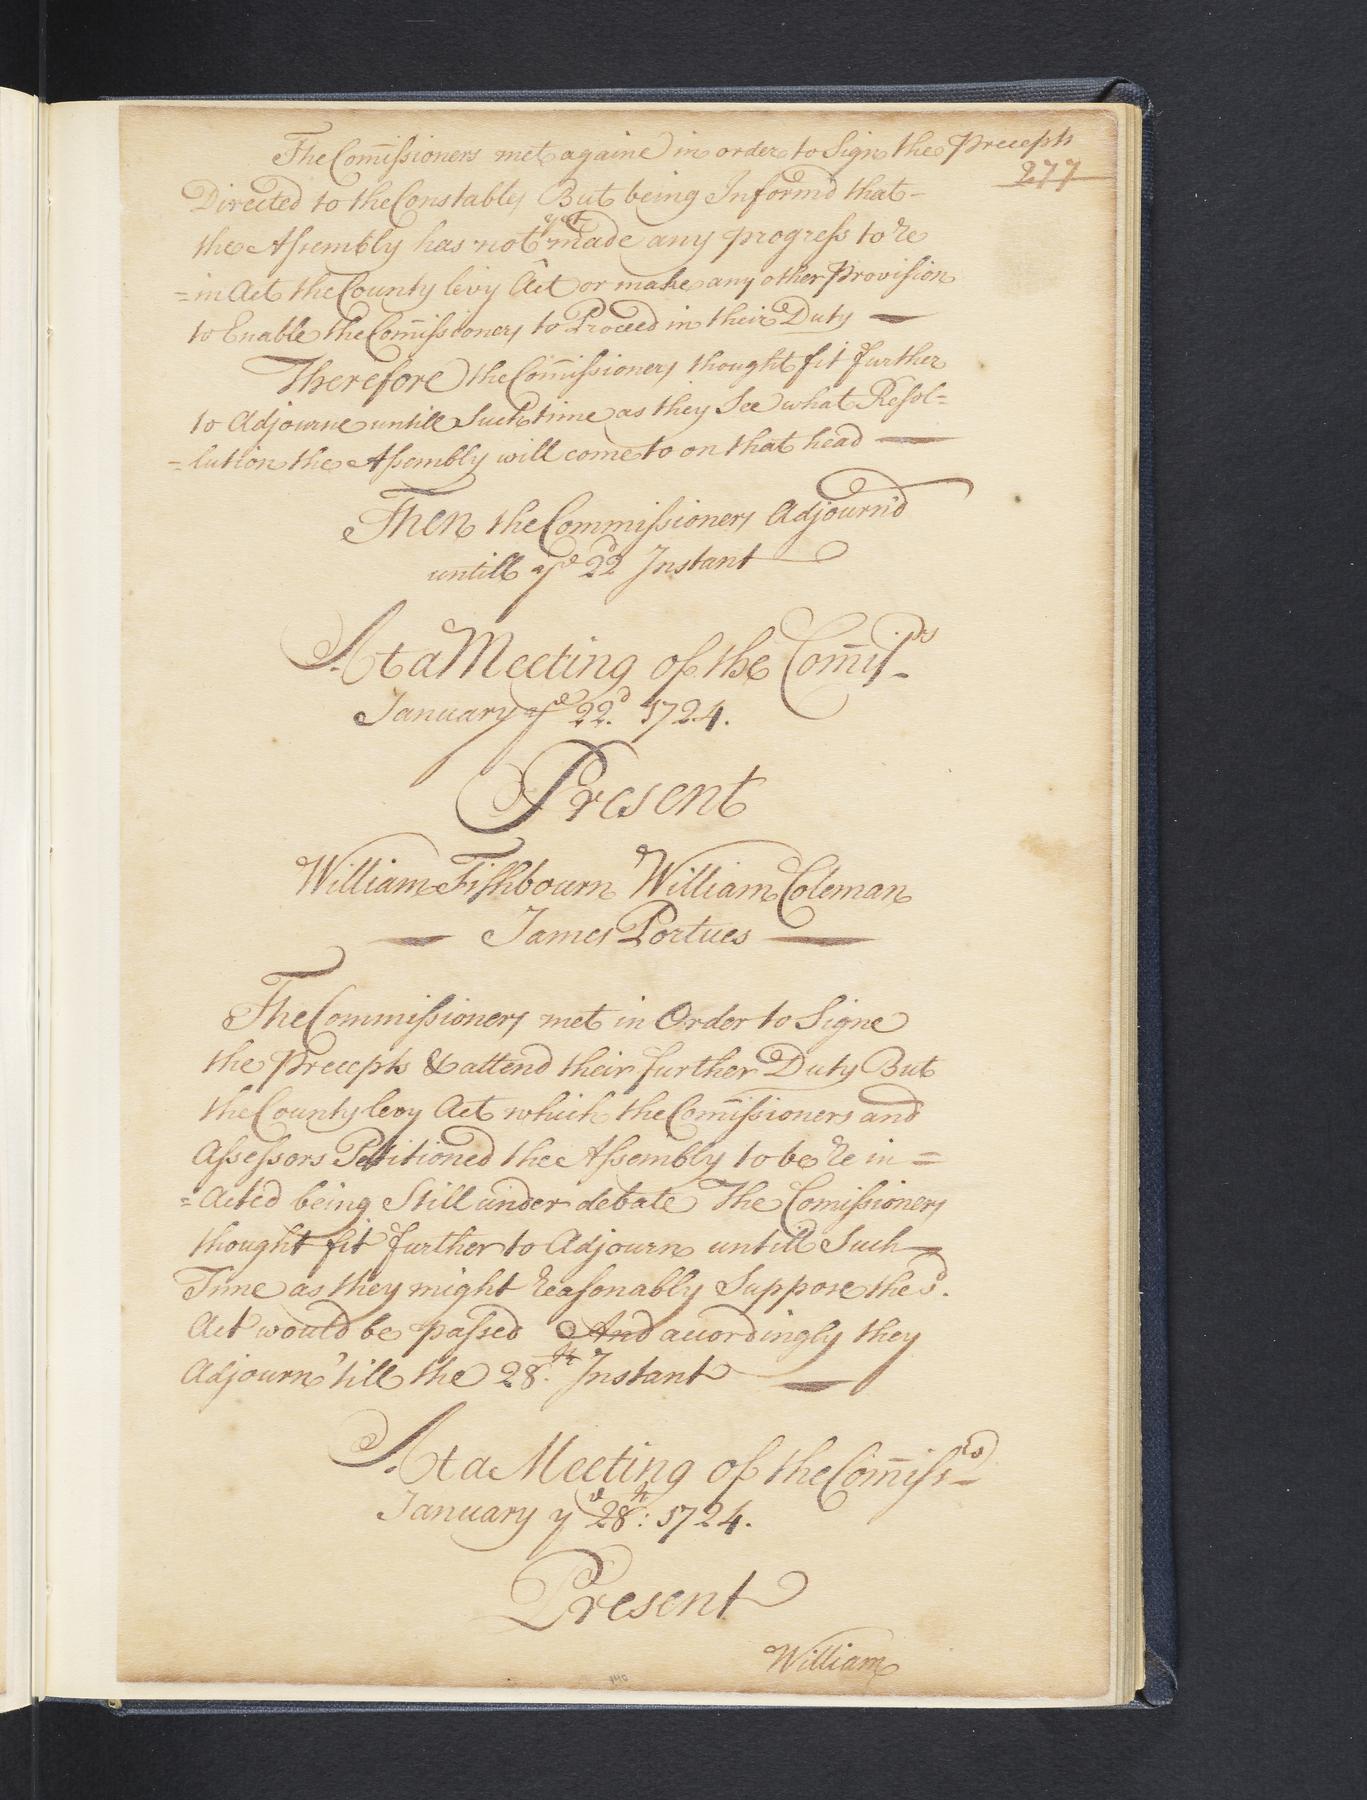 The Com̄issioners met againe in order to Sign the Precepts
277
Directed to the Constables But being Inform'd that -
the Assembly has not yet made any progress to Re
=in Act the County levy Act or make any other Provision
to Enable the Com̄issioners to Proceed in their Duty —
Therefore the Com̄issioners thought fit further
to Adjourne untill Such time as they See what Resol=
=lution the Assembly will come to on that head —
Then the Commissioners Adjourn'd
untill yᵉ 22ᵈ Instant
At a Meeting of the Com̄isʳˢ
January yᵉ 22.ᵈ 1724.
Present
William Fishbourn William Coleman
— James Portues —
The Commissioners met in Order to Signe
the Precepts & attend their further Duty But
the County levy Act which the Com̄issioners and
Assessors Petitioned the Assembly to be Re in =
=Acted being Still under debate The Comissioners
thought fit further to Adjourn untill Such
Time as they might reasonably Suppose the sᵈ.
Act would be passed And accordingly they
Adjourn 'till the 28.ᵗʰ Instant —
At a Meeting of the Com̄issʳˢ
January yᵉ 28ᵗʰ: 1724.
Present
William
140